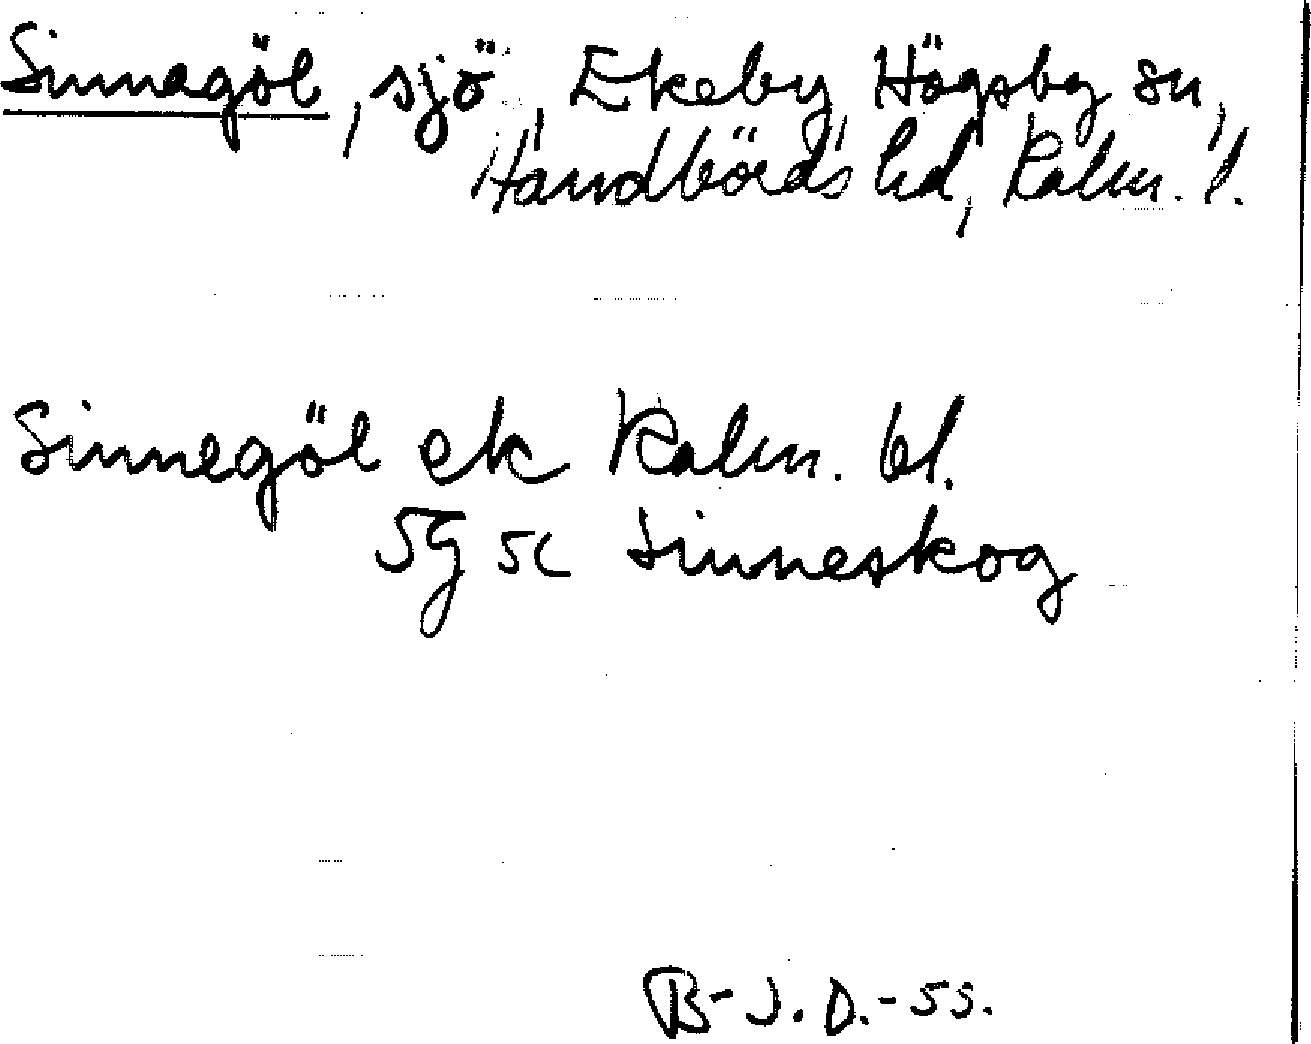 Sinnagöl, sjö, Ekeby, Högsby sn,
Handbörds hd, Kalm. l.
Sinnegöl ek Kalm. bl.
5g 5c Sinneskog
B-J. D.-55.